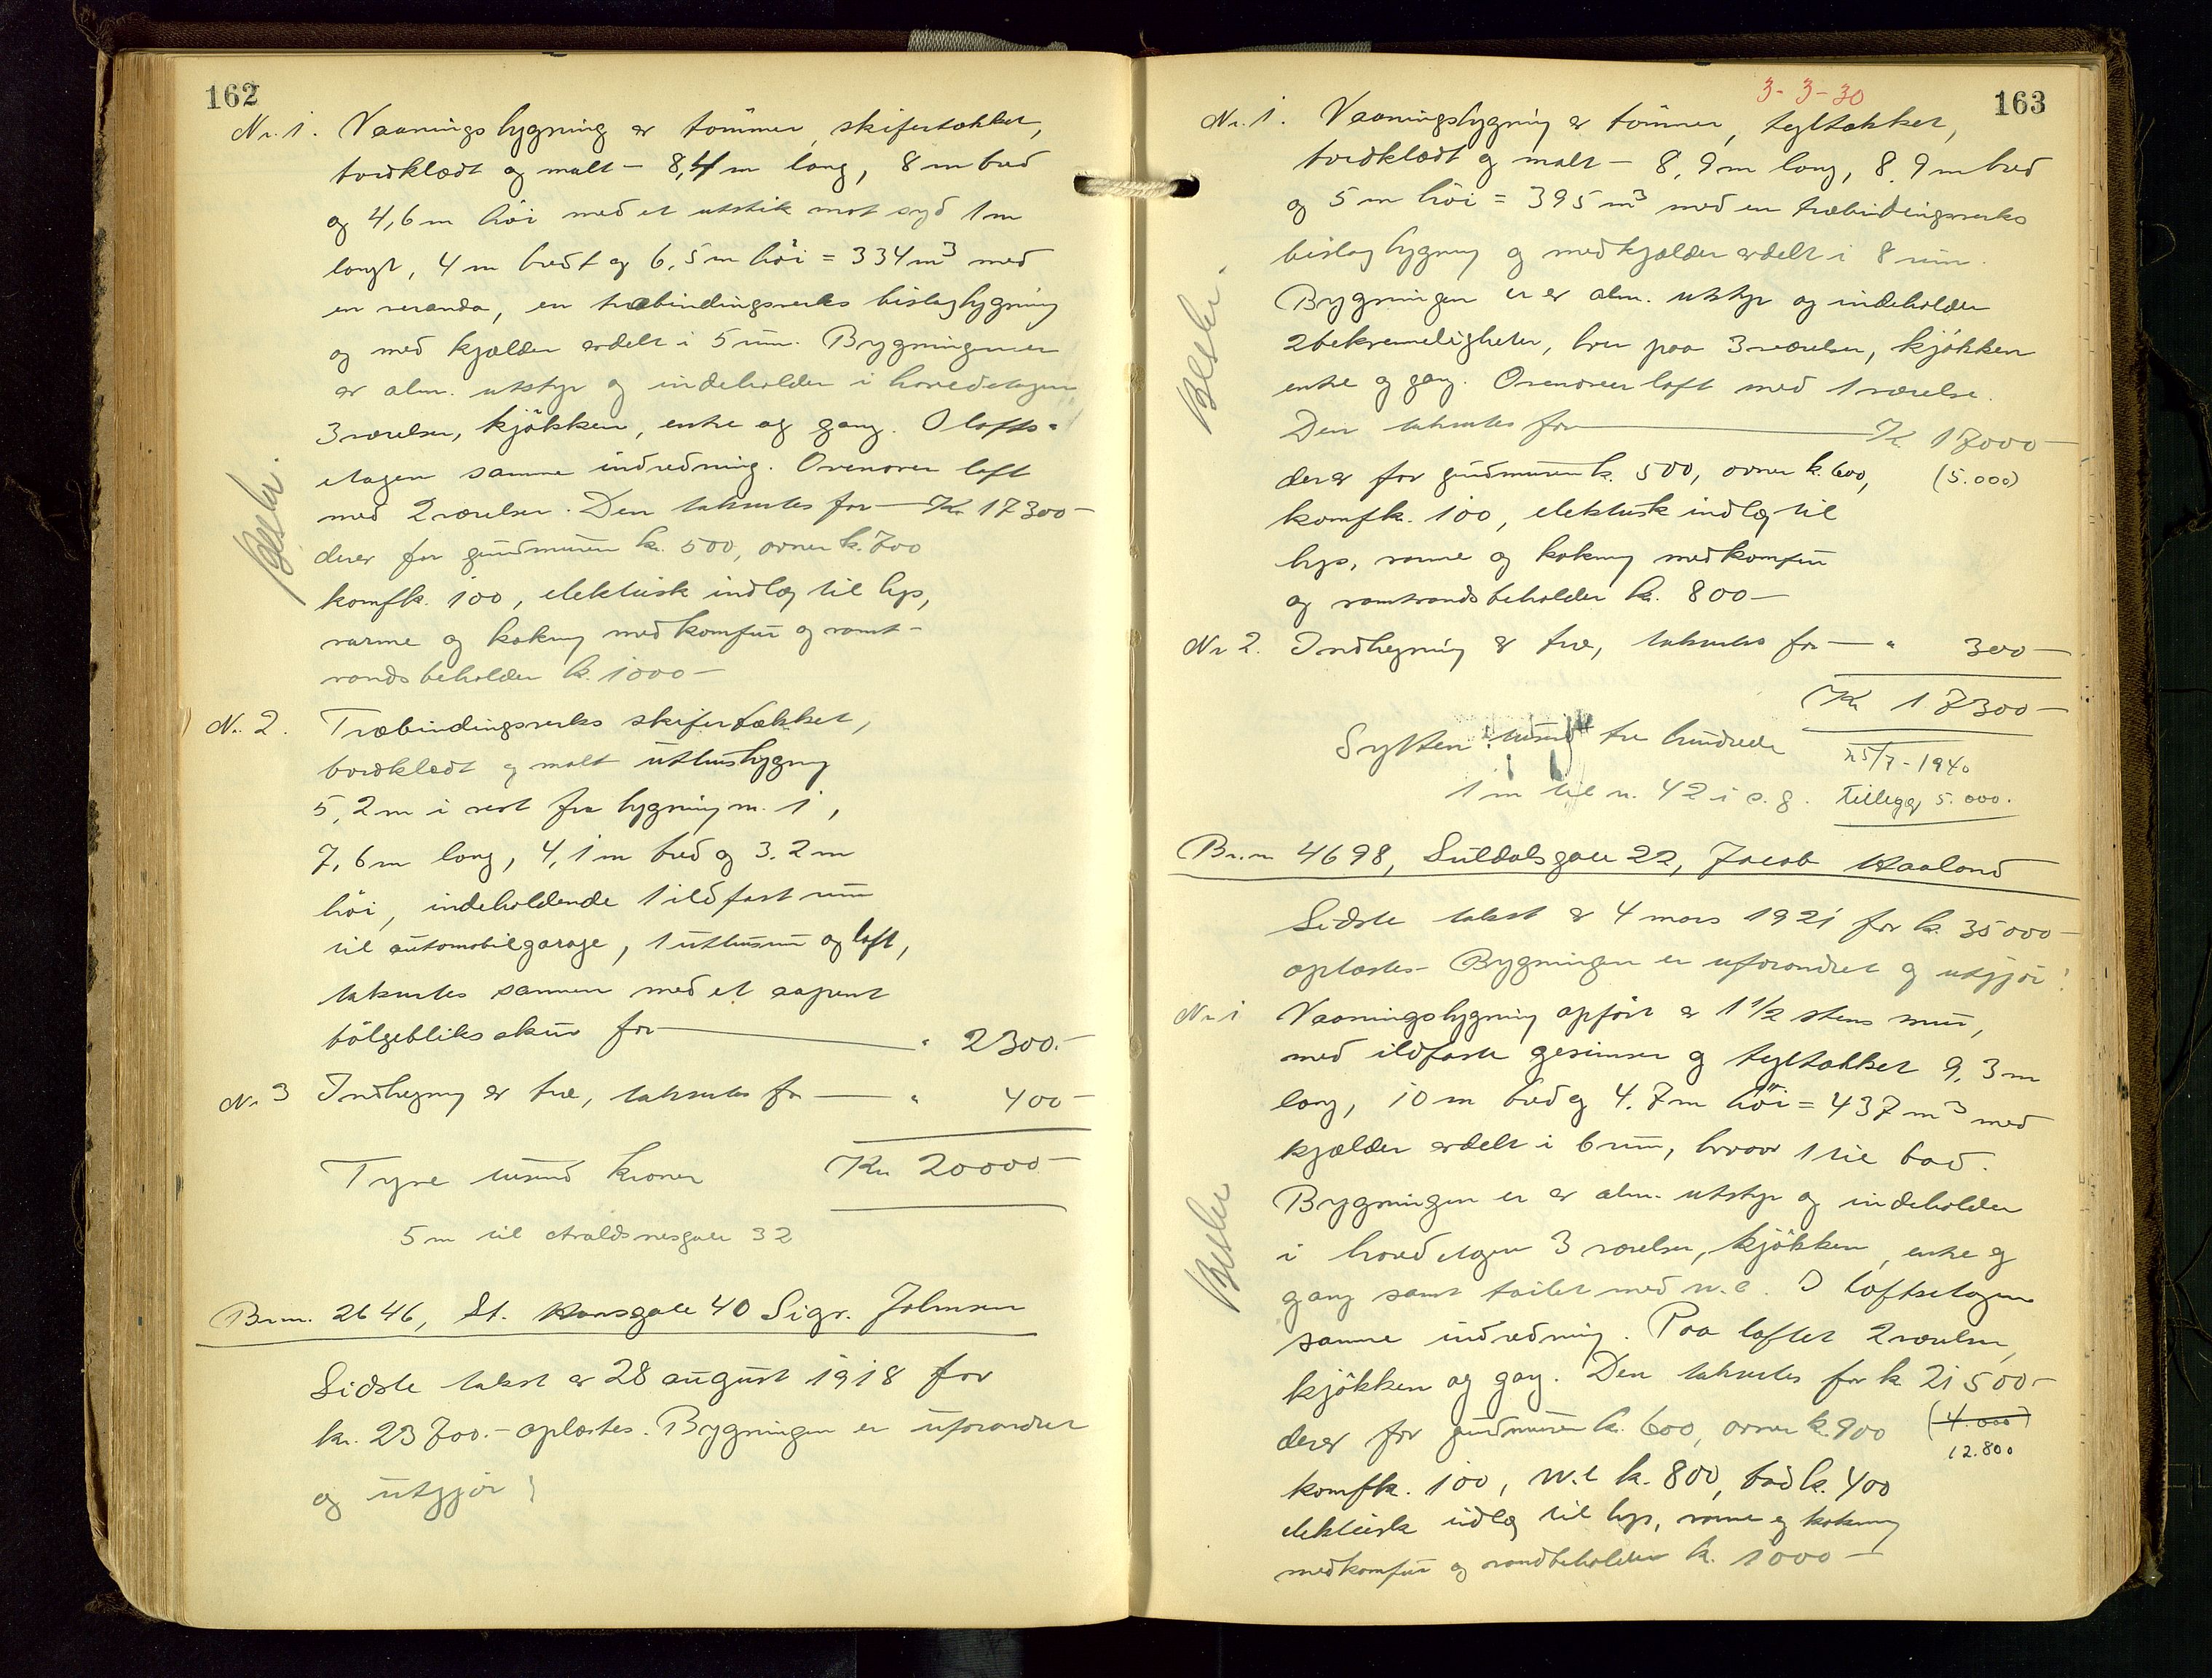 162
Nr. 1. Vaaningsbygning av tømmer, skifertækket,
bordklædt og malt – 8,4 m lang, 8 m bred
og 4,6 m høi med et utstik mot syd 1 m
langt, 4 m bredt og 6,5 m høi = 334 m³ med
en veranda, en træbindingsverks bislagbygning
og med kjælder avdelt i 5 rum. Bygningen er
av alm. utstyr og indeholder i hovedetagen
3 værelser, kjøkken, entre og gang. I lofts-
etagen samme indredning. Ovenover loft
med 2 værelser. Den takseres for — Kr. 17300 –
derav for grundmuren kr. 500, ovner kr. 700
komf kr. 100, elektrisk indlæg til lys,
varme og kokning med komfur og varmt-
vandsbeholder kr. 1000 –
Nr. 2. Træbindingsverks skifertækket,
bordklædt og malt uthusbygning
5,2 m i vest fra bygning nr. 1,
7,6 m lang, 4,1 m bred og 3,2 m
høi, indeholdende 1 ildfast rum
til automobilgarage, 1 uthusrum og loft,
takseres sammen med et aapent
bølgeblikskur for — " 2300.–
Nr. 3 Indhegning av træ, takseres for — " 400 –
Tyve tusind kroner Kr. 20000 –
5 m til Avaldsnesgate 32
Br.nr. 2646, St. Hansgate 40 Sigv. Johnsen
Sidste takst av 28 august 1918 for
kr. 23700.– oplæstes. Bygningen er uforandret
og utgjør:
Bestyr.
3-3-30
163
Nr. 1. Vaaningsbygning av tømmer, tegltækket,
bordklædt og malt – 8,9 m lang, 8,9 m bred
og 5 m høi = 395 m³ med en træbindingsverks
bislagbygning og med kjælder avdelt i 8 rum.
Bygningen er av alm. utstyr og indeholder
2 bekvemmeligheter, hver paa 3 værelser, kjøkken
entre og gang. Ovenover loft med 1 værelse.
Den takseres for — Kr. 17000 –
derav for grundmuren kr. 500, ovner kr. 600, (5.000)
komf kr. 100, elektrisk indlæg til
lys, varme og kokning med komfur
og varmtvandsbeholder kr. 800 –
Nr 2. Indhegning av træ, takseres for — " 300 –
Kr 17300 –
Sytten tusind tre hundrede
25/7 - 1940
1 m til nr. 42 i s. g. Tillegg 5.000.
Br.nr 4698, Suldalsgate 22, Jacob Haaland
Sidste takst av 4 mars 1921 for kr. 35000 –
oplæstes – Bygningen er uforandret og utgjør:
Nr. 1 Vaaningsbygning opført av 1 1/2 stens mur,
med ildfaste gesimser og tegltækket 9,3 m
lang, 10 m bred og 4,7 m høi = 437 m³ med
kjælder avdelt i 6 rum, hvorav 1 til bad.
Bygningen er av alm. utstyr og indeholder
i hovedetagen 3 værelser, kjøkken, entre og
gang samt toilet med w.c. I loftsetagen
samme indredning. Paa loftet 2 værelser,
kjøkken og gang. Den takseres for kr. 21500 –
derav for grundmuren kr. 600, ovner kr. 900 (4.000)
12.800
komf kr. 100, w.c kr. 800, bad kr. 400
elektrisk indlæg til lys, varme og kokning
med komfur og vandbeholder kr. 1000 –